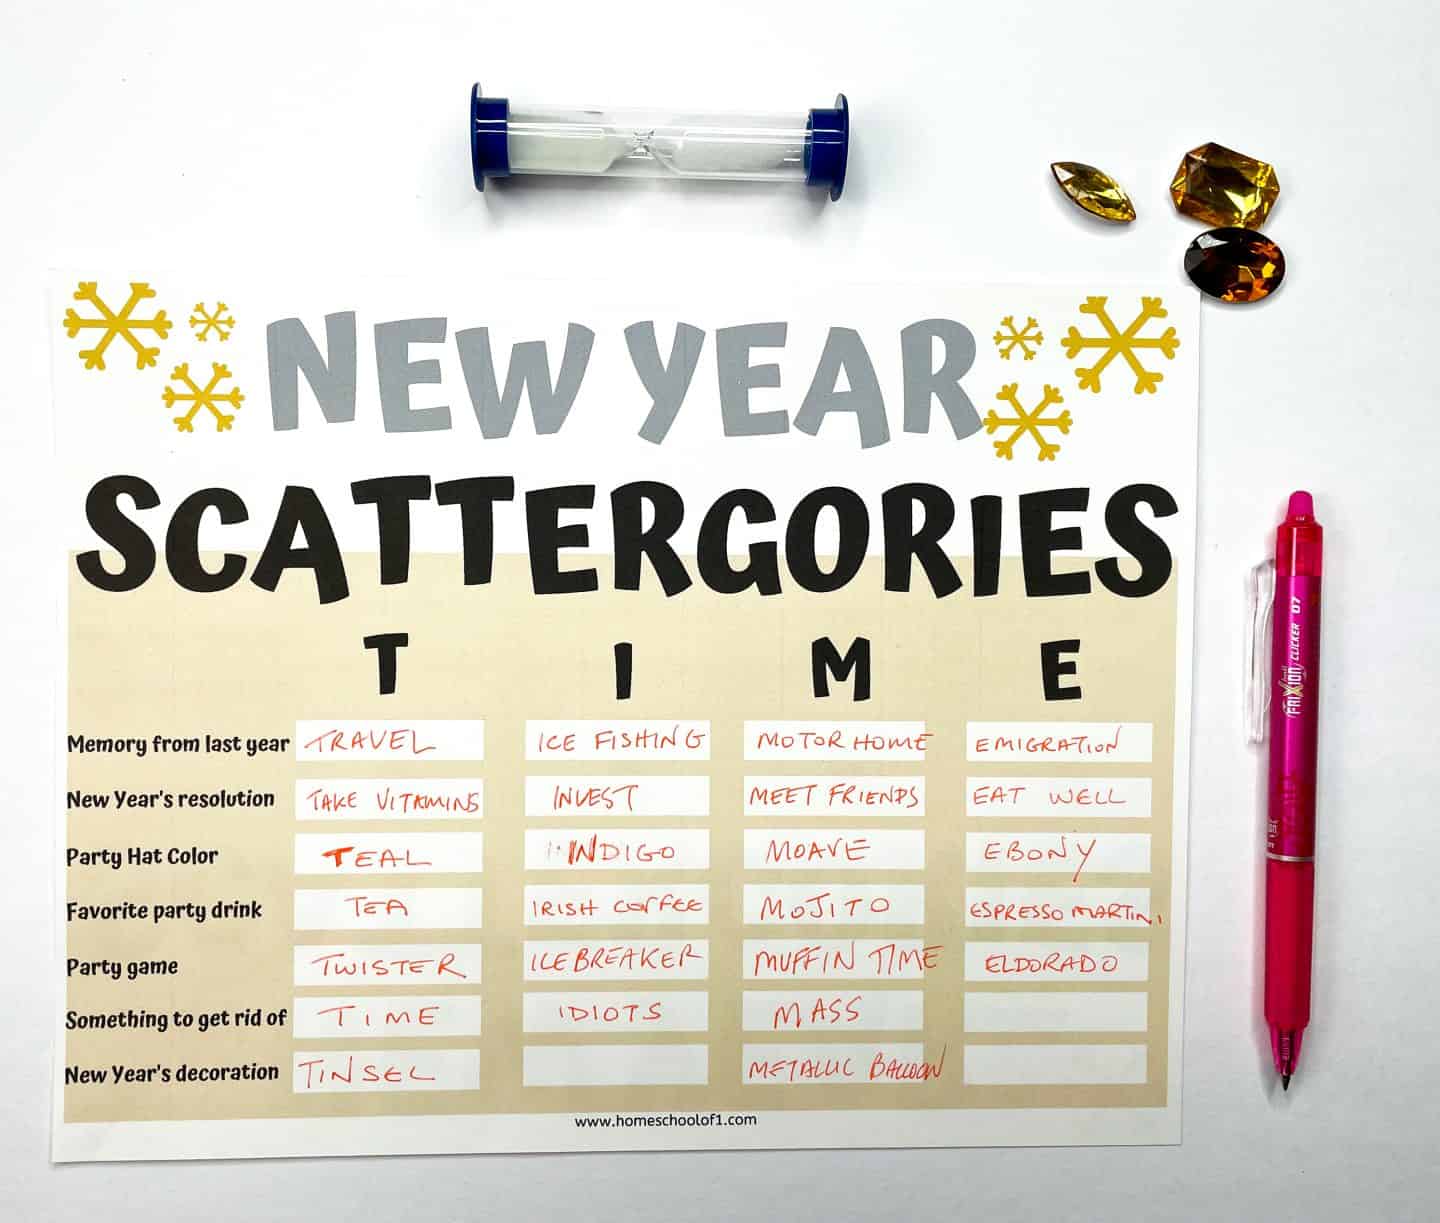 NEW YEAR
SCATTERGORIES
T I M E
Memory from last year TRAVEL ICE FISHING MOTOR HOME EMIGRATION
New Year's resolution TAKE VITAMINS INVEST MEET FRIENDS EAT WELL
Party Hat Color TEAL INDIGO MOAVE EBONY
Favorite party drink TEA IRISH COFFEE MOJITO ESPRESSO MARTINI
Party game TWISTER ICEBREAKER MUFFIN TIME ELDORADO
Something to get rid of TIME IDIOTS MASS
New Year's decoration TINSEL METALLIC BALLOON
www.homeschoolof1.com
FRIXION CLICKER 07